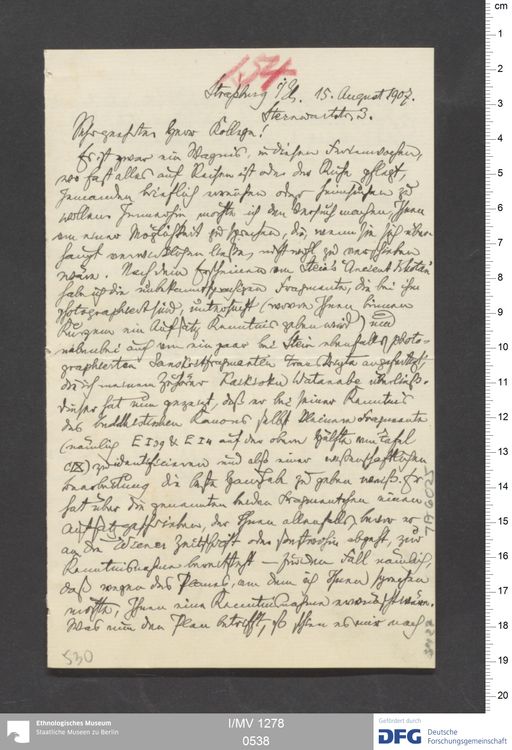 154
Straßburg i/E., 15. August 1907.
Sternwartstr. 3.
Sehr geehrter Herr Kollege!
Es ist zwar ein Wagnis, in diesen Ferienwochen,
wo fast alles auf Reisen ist oder der Ruhe pflegt,
Jemanden brieflich erreichen oder heimsuchen zu
wollen. Immerhin möchte ich den Versuch machen, Ihnen
von einer Möglichkeit zu sprechen, die, wenn sie sich über-
haupt verwirklichen ließe, nicht wohl zu verschieben
wäre. Nach dem Erscheinen von Stein's "Ancient Khotan"
habe ich die Fragmente, die bei ihm
photographiert sind, untersucht (wovon Ihnen binnen
Kurzem ein Aufsatz Kenntnis geben wird) und
nebenbei auch von ein paar bei Stein ebenfalls photo-
graphierten Sanskritfragmenten Transkripte angefertigt,
die ich meinem Zuhörer Kaikioku Watanabe überließ.
Dieser hat nun gezeigt, daß er bei seiner Kenntnis
des buddhistischen Kanons selbst kleinere Fragmente
(nämlich E I 39 & E I 4 auf der obern Hälfte von Tafel
CIX) zu identificieren und also einer wissenschaftlichen
Bearbeitung die beste Handhabe zu geben weiß. Er
hat über die genannten beiden Fragmente einen
Aufsatz geschrieben, der Ihnen allenfalls, bevor er
an die Wiener Zeitschrift oder sonstwohin abgeht, zur
Kenntnisnahme bereitsteht — für den Fall nämlich,
daß wegen des Planes, von dem ich Ihnen sprechen
möchte, Ihnen eine Kenntnisnahme erwünscht wäre.
Was nun den Plan betrifft, so schien es mir nach
530
TA 6025
cm
1
2
3
4
5
6
7
8
9
10
11
12
13
14
15
16
17
18
19
20
Ethnologisches Museum
Staatliche Museen zu Berlin
I/MV 1278
0538
Gefördert durch
DFG Deutsche
Forschungsgemeinschaft